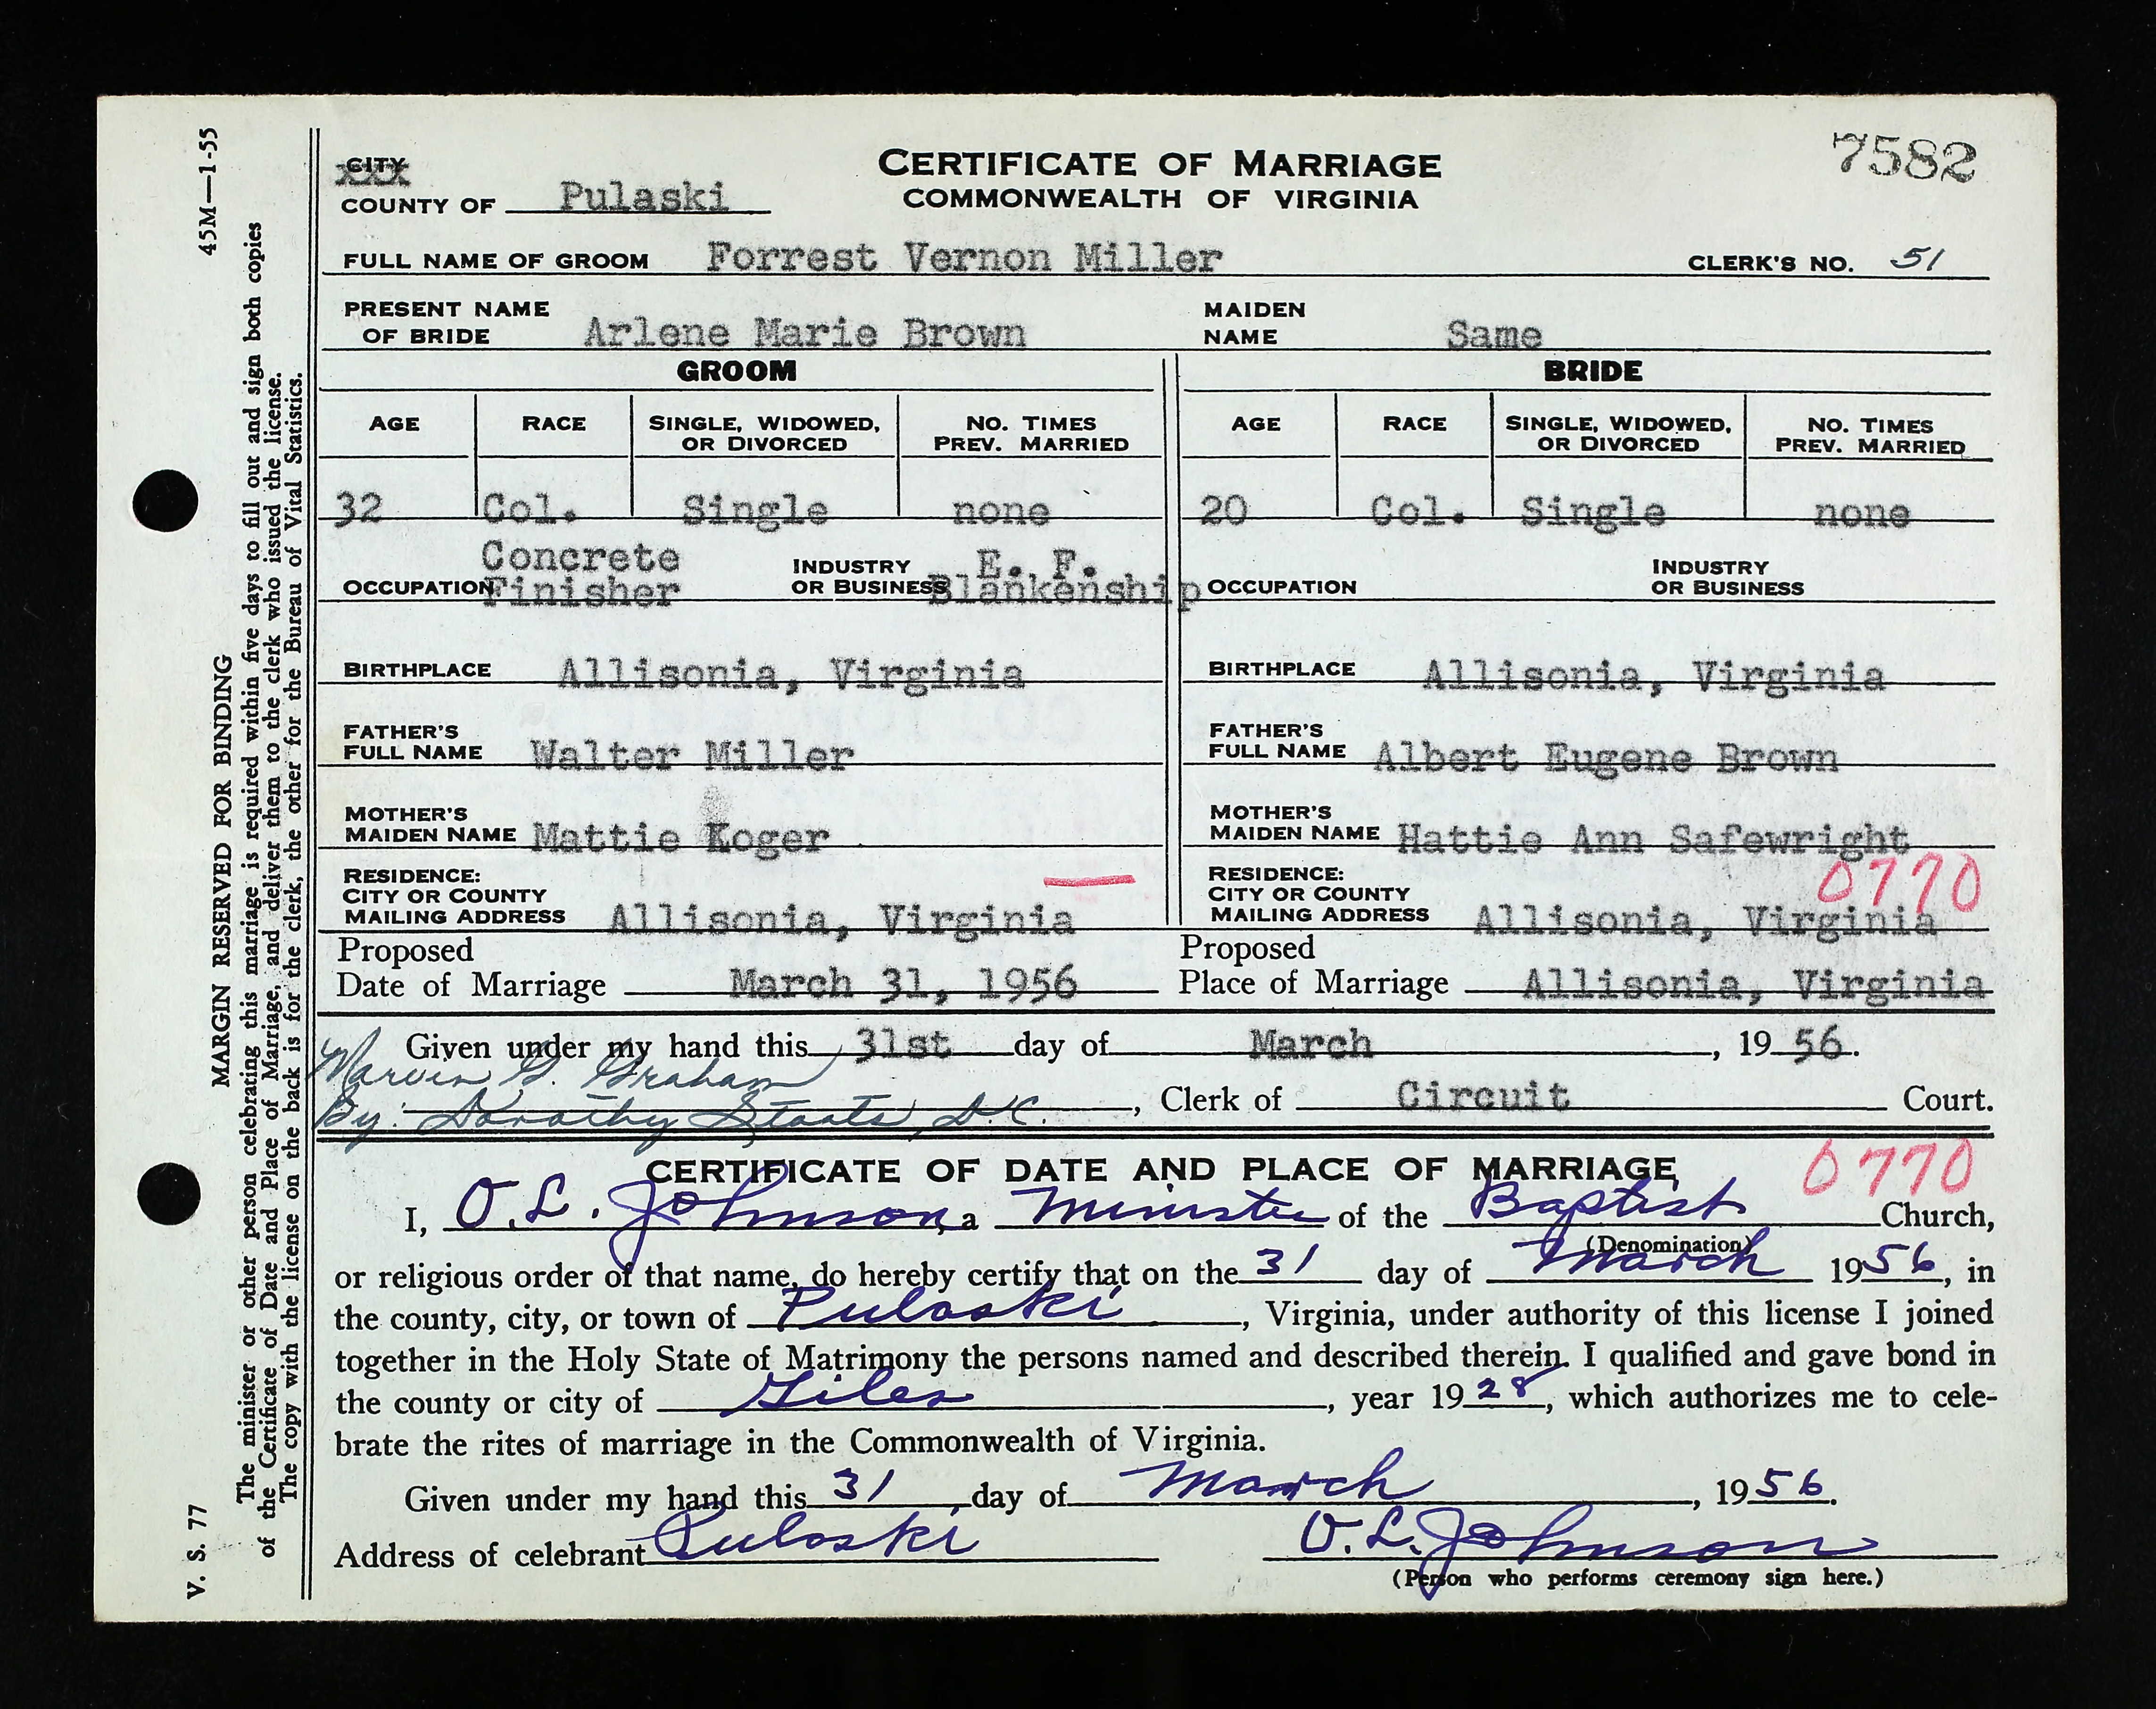 45M—1-55
MARGIN RESERVED FOR BINDING
The minister or other person celebrating this marriage is required within five days to fill out and sign both copies
of the Certificate of Date and Place of Marriage, and deliver them to the clerk who issued the license.
The copy with the license on the back is for the clerk, the other for the Bureau of Vital Statistics.
V. S. 77
7582
CITY
XXX
COUNTY OF Pulaski
CERTIFICATE OF MARRIAGE
COMMONWEALTH OF VIRGINIA
FULL NAME OF GROOM Forrest Vernon Miller CLERK'S NO. 51
PRESENT NAME
OF BRIDE Arlene Marie Brown
MAIDEN
NAME Same
GROOM BRIDE
AGE RACE SINGLE, WIDOWED, OR DIVORCED NO. TIMES PREV. MARRIED AGE RACE SINGLE, WIDOWED, OR DIVORCED NO. TIMES PREV. MARRIED
32 Col. Single none 20 Col. Single none
OCCUPATION Concrete Finisher INDUSTRY OR BUSINESS E. F. Blankenship OCCUPATION INDUSTRY OR BUSINESS
BIRTHPLACE Allisonia, Virginia BIRTHPLACE Allisonia, Virginia
FATHER'S FULL NAME Walter Miller FATHER'S FULL NAME Albert Eugene Brown
MOTHER'S MAIDEN NAME Mattie Koger MOTHER'S MAIDEN NAME Hattie Ann Safewright
RESIDENCE: RESIDENCE: 0770
CITY OR COUNTY CITY OR COUNTY
MAILING ADDRESS Allisonia, Virginia MAILING ADDRESS Allisonia, Virginia
Proposed Proposed
Date of Marriage March 31, 1956 Place of Marriage Allisonia, Virginia
Given under my hand this 31st day of March, 19 56.
Marvin G. Graham
By: Dorothy Staats, D.C., Clerk of Circuit Court.
CERTIFICATE OF DATE AND PLACE OF MARRIAGE 0770
I, O. L. Johnson, a Minister of the Baptist Church,
(Denomination)
or religious order of that name, do hereby certify that on the 31 day of March 1956, in
the county, city, or town of Pulaski, Virginia, under authority of this license I joined
together in the Holy State of Matrimony the persons named and described therein. I qualified and gave bond in
the county or city of Giles, year 1928, which authorizes me to cele-
brate the rites of marriage in the Commonwealth of Virginia.
Given under my hand this 31 day of March, 1956.
Address of celebrant Pulaski O. L. Johnson
(Person who performs ceremony sign here.)